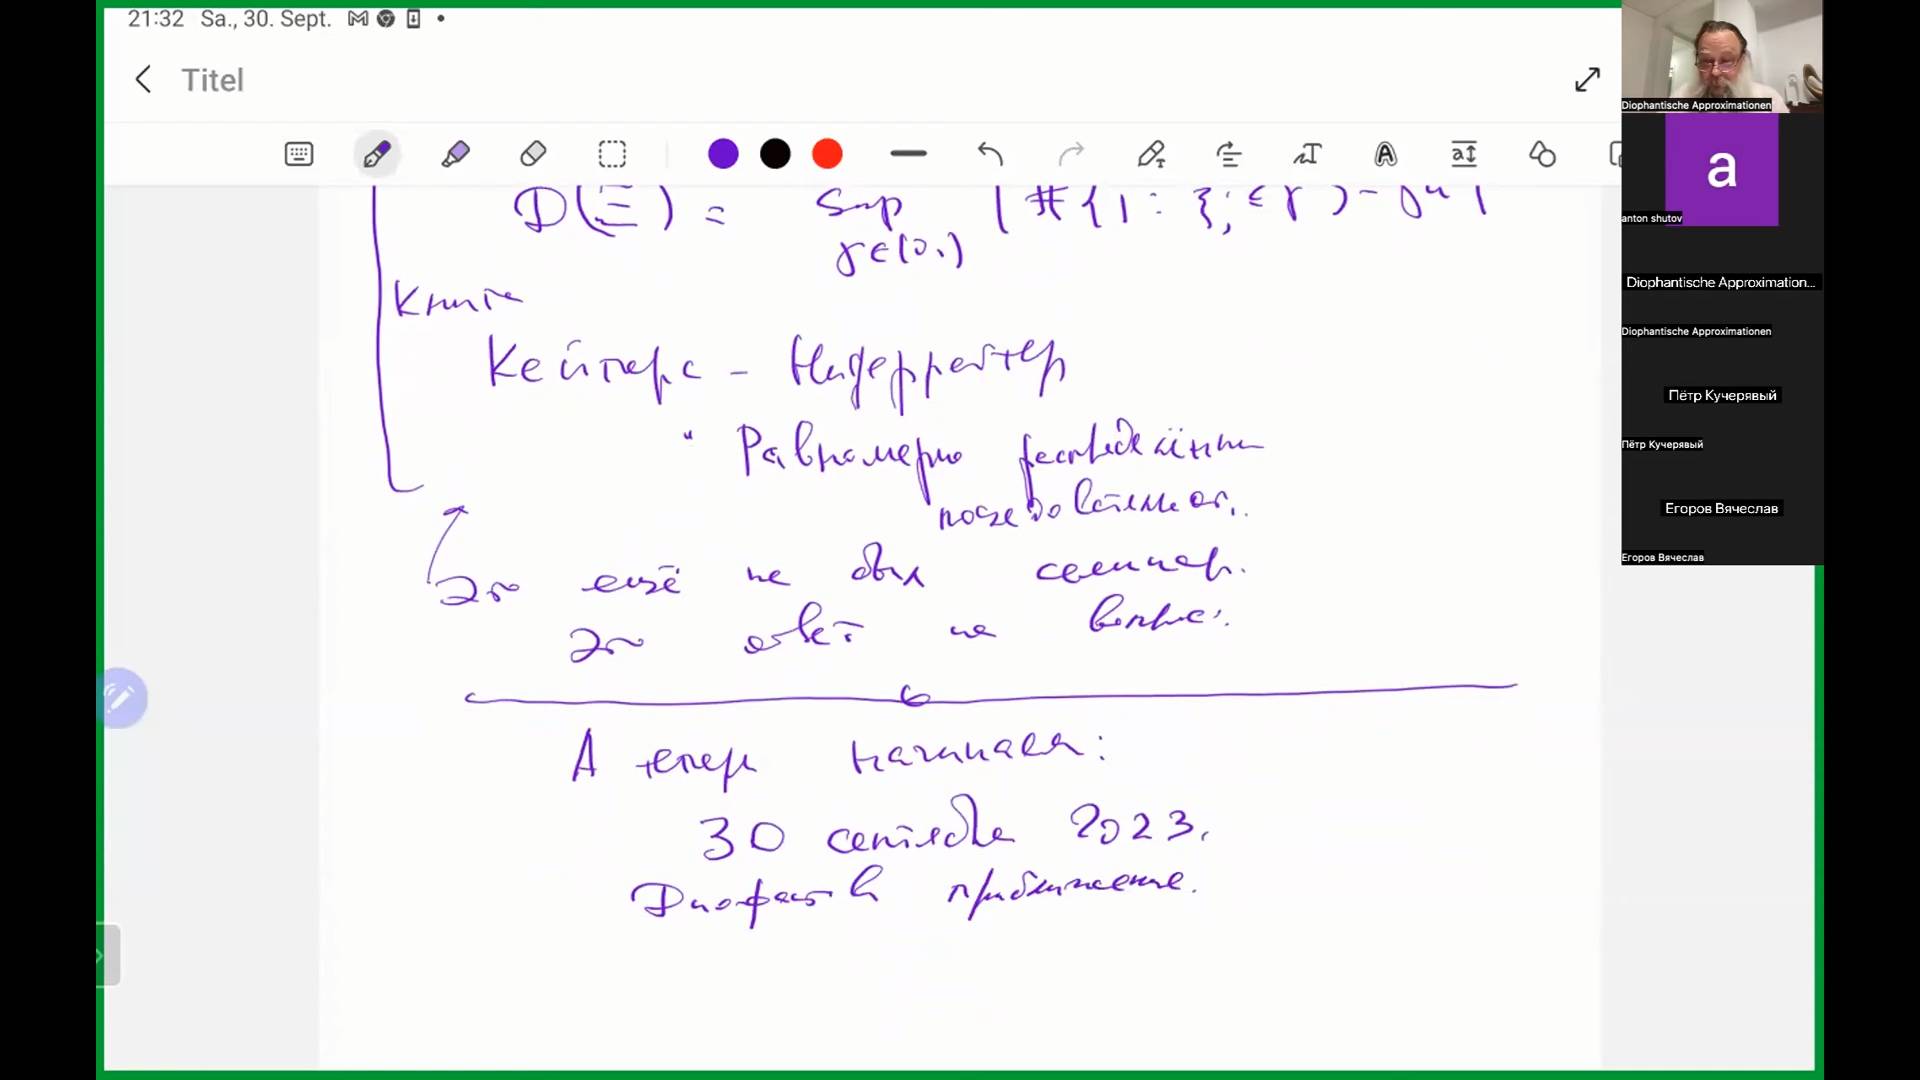 21:32 Sa., 30. Sept.
Titel
D(Ξ) = sup | #{j : ξ_j ∈ γ
γ∈(0,1)
Книга
Кейперс - Нидеррейтер
" Равномерно распределённые
последовательнос..
Это ещё не был семинар.
Это ответ на вопрос.
А теперь начинаем:
30 сентября 2023.
Диофантовы приближение.
Diophantische Approximationen
a
anton shutov
Diophantische Approximation...
Diophantische Approximationen
Пётр Кучерявый
Пётр Кучерявый
Егоров Вячеслав
Егоров Вячеслав